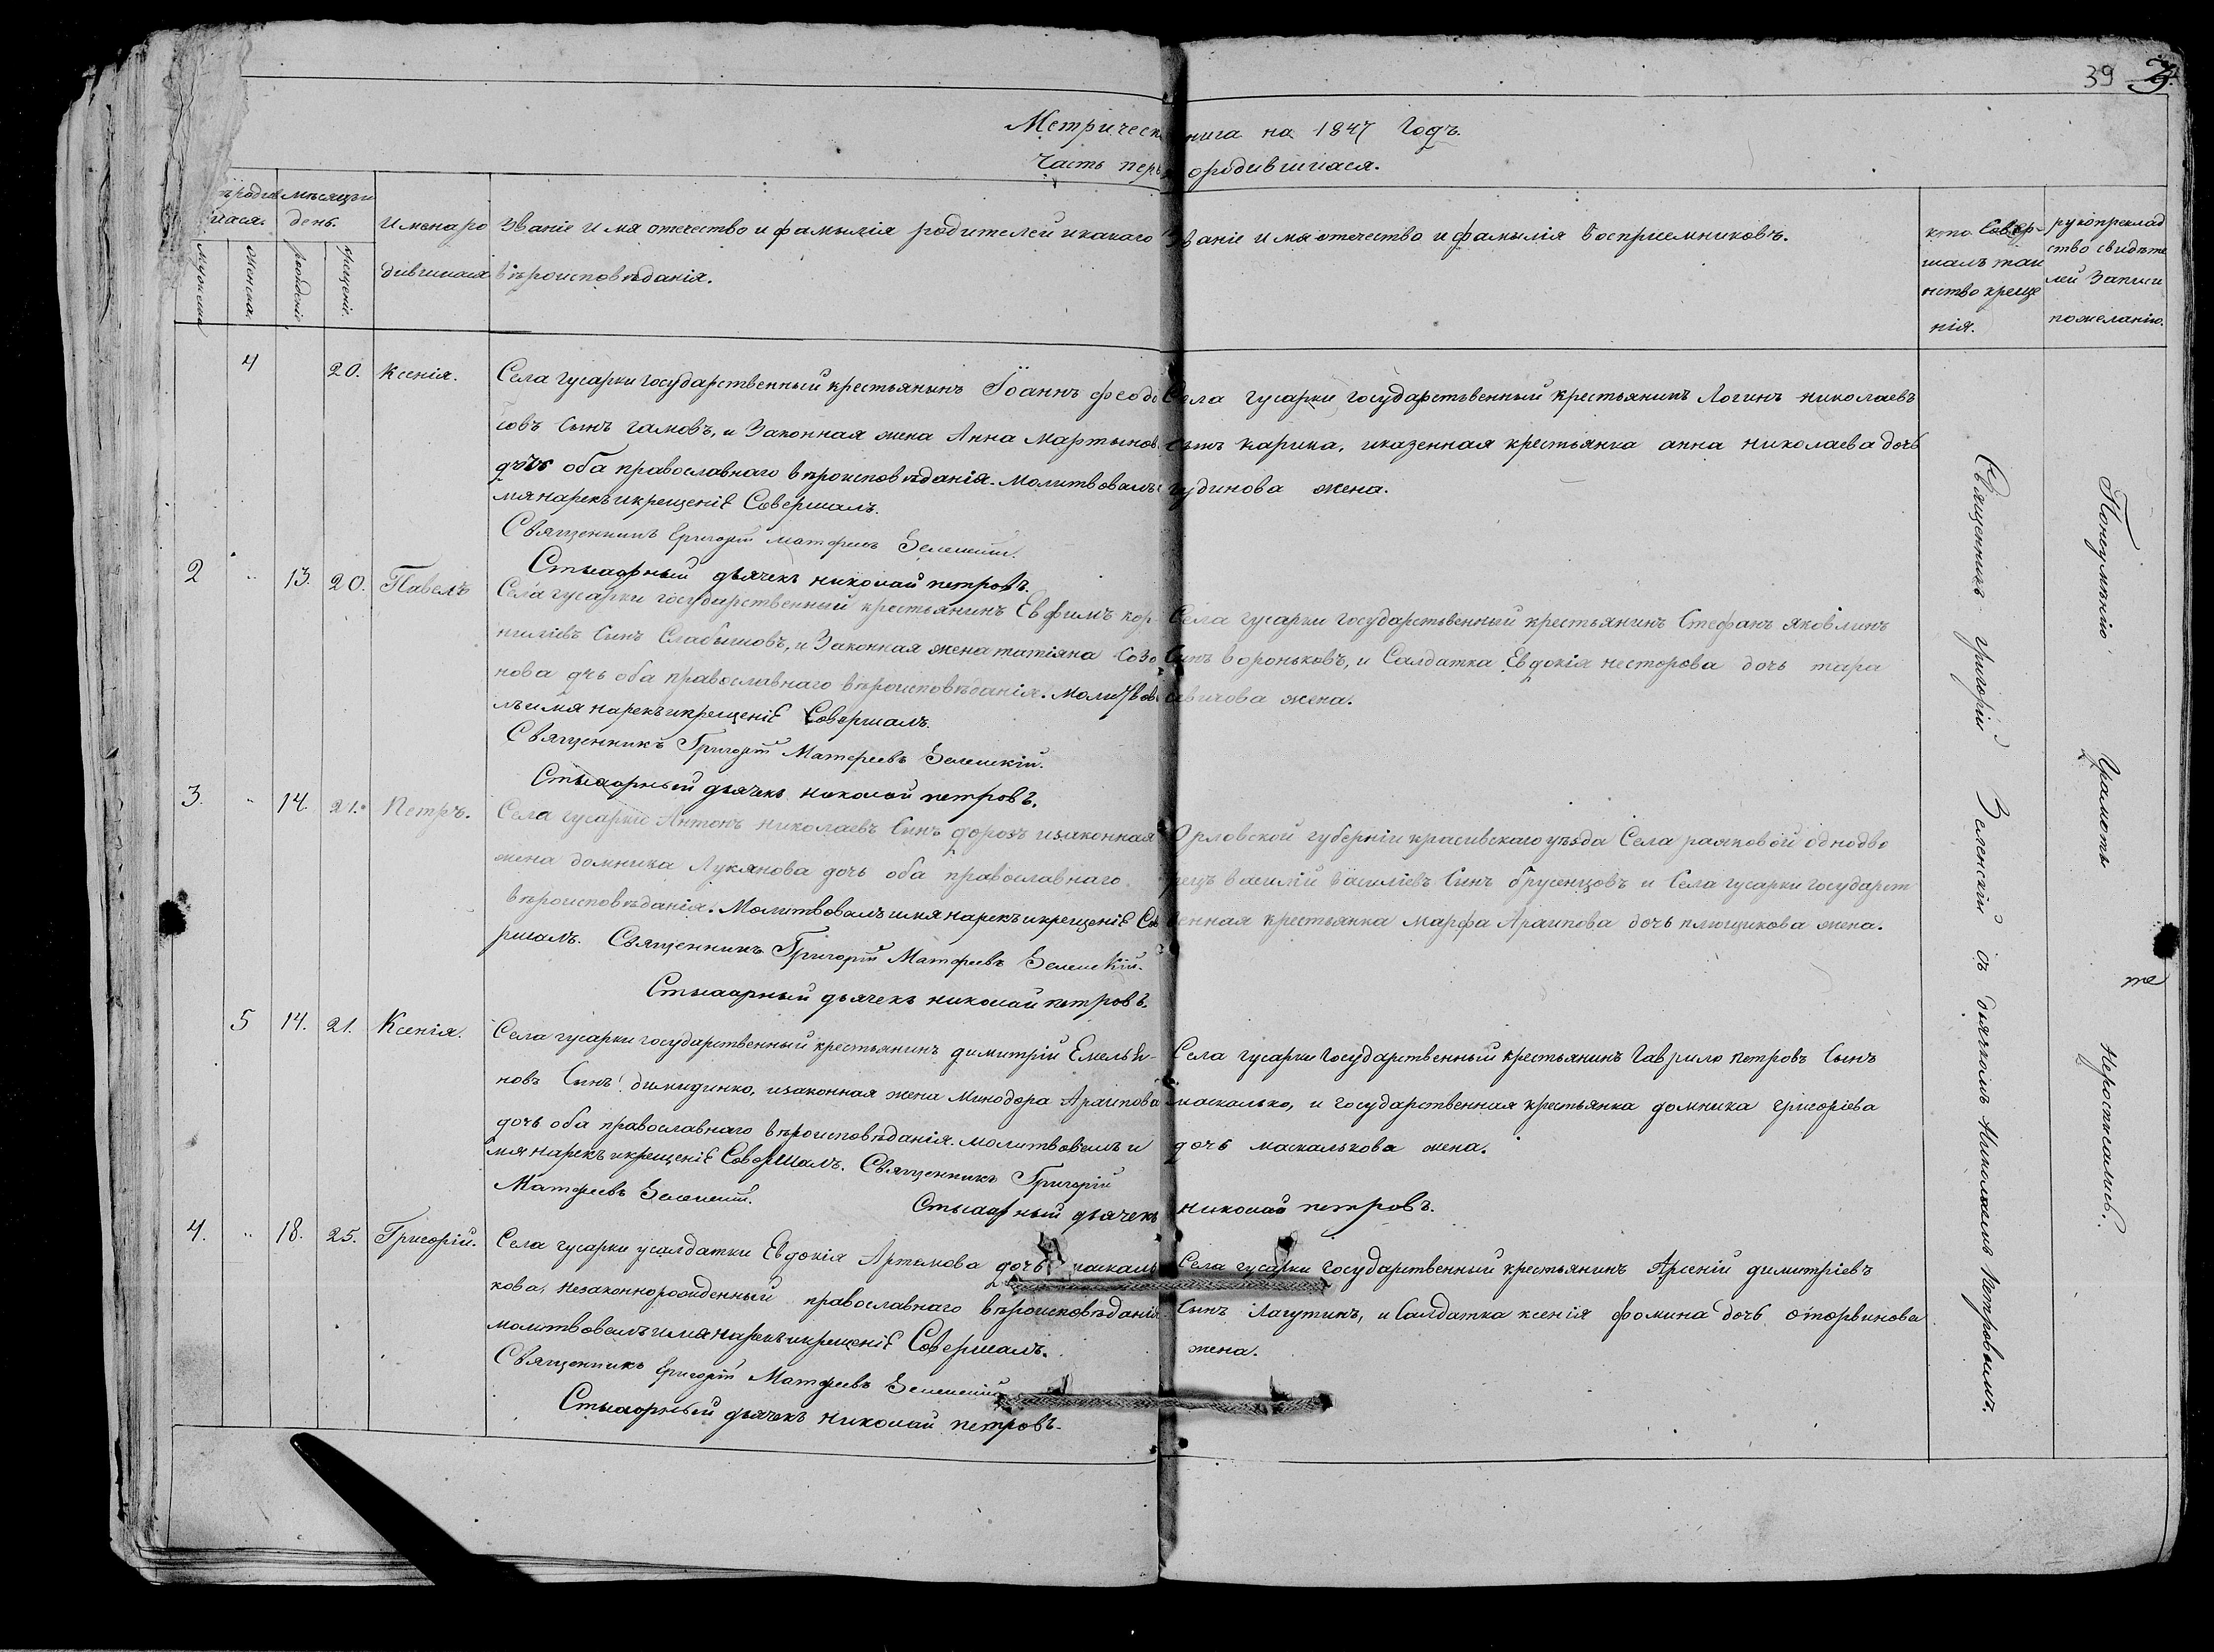 39
Метрическ нига на 1847 Годъ.
Часть перв ородившихся.
мѣсяцъ и
день.
Имена ро
дившихся
Званіе имя отечество и фамылія родителей икакого
вѣроисповѣданія.
Званіе имя отечество и фамылія Воспріемниковъ.
кто Совер-
шалъ таи
нство креще
нія.
рукопреклад
ство свидѣте
лей Записи
пожеланію.
мужска
Женска.
рожденіе
крещеніе.
4 20. Ксенія.
Села гусарки государственный крестьянинъ Іоаннъ феодо
совъ Сынъ гамовъ, и Законная жена Анна Мартынов
дочь оба православнаго вѣроисповѣданія. Молитвовалъ
мя нарекъ икрещеніе Совершалъ.
Священникъ Григорій Матфеевъ Зеленскій.
Стихарный дьячекъ николай петровъ.
Села гусарки государственный крестьянинъ Логинъ николаевъ
Сынъ карика, иказенная крестьянка анна николаева дочь
гудинова жена.
2 13. 20. Павелъ
Села гусарки государственный крестьянинъ Евфимъ кор-
ниліевъ Сынъ Слабышовъ, и Законная жена татіяна Созо
нова дчь оба православнаго вѣроисповѣданія. Молитвов
лъ имя нарекъ икрещеніе Совершалъ.
Священникъ Григорій Матфеевъ Зеленскій.
Стихарный дьячекъ николай петровъ.
Села гусарки государственный крестьянинъ Стефанъ яковлинъ
Сынъ вороньковъ, и Салдатка Евдокія несторова дочь тара
севичова жена.
3. 14. 21. Петръ.
Села гусарки Антонъ николаевъ Сынъ дорохъ изаконная
жена домника Лукянова дочь оба православнаго
вѣроисповѣданія. Молитвовалъ имя нарекъ икрещеніе Сов
ршалъ. Священникъ Григорій Матфеевъ Зеленскій.
Стихарный дьячекъ николай петровъ.
Орловской губерніи красивскаго уѣзда Села раяповой однодво
рецъ василій василіевъ Сынъ брусенцовъ и Села гусарки государст
венная крестьянка Марфа Архипова дочь плющикова жена.
5 14. 21. Ксенія.
Села гусарки государственный крестьянинъ димитрій Емелья-
новъ Сынъ димидинко, изаконная жена Минодора Архипова
дочь оба православнаго вѣроисповѣданія. молитвовалъ и
мя нарекъ икрещеніе Совершалъ. Священникъ Григорій
Матфеевъ Зеленскій.
Стихарный дьячекъ николай петровъ.
Села гусарки государственный крестьянинъ Гаврило петровъ Сынъ
маскалько, и государственная крестьянка домника григоріева
дочь маскалькова жена.
4. 18. 25. Григорій.
Села гусарки усалдатки Евдокія Артемова дочь паскаль
кова, незаконнорожденный православнаго вѣроисповѣданія
молитвовалъ имя нарекъ икрещеніе Совершалъ.
Священникъ Григорій Матфеевъ Зеленскій
Стихарный дьячекъ николай петровъ.
Села гусарки государственный крестьянинъ Арсеній димитріевъ
Сынъ Лагутинъ, и Салдатка ксенія фомина дочь оторвинова
жена.
Священникъ григорій Зеленскій съ дьячкомъ Николаемъ Петровымъ.
Понеумѣнію Грамоты не росписались.